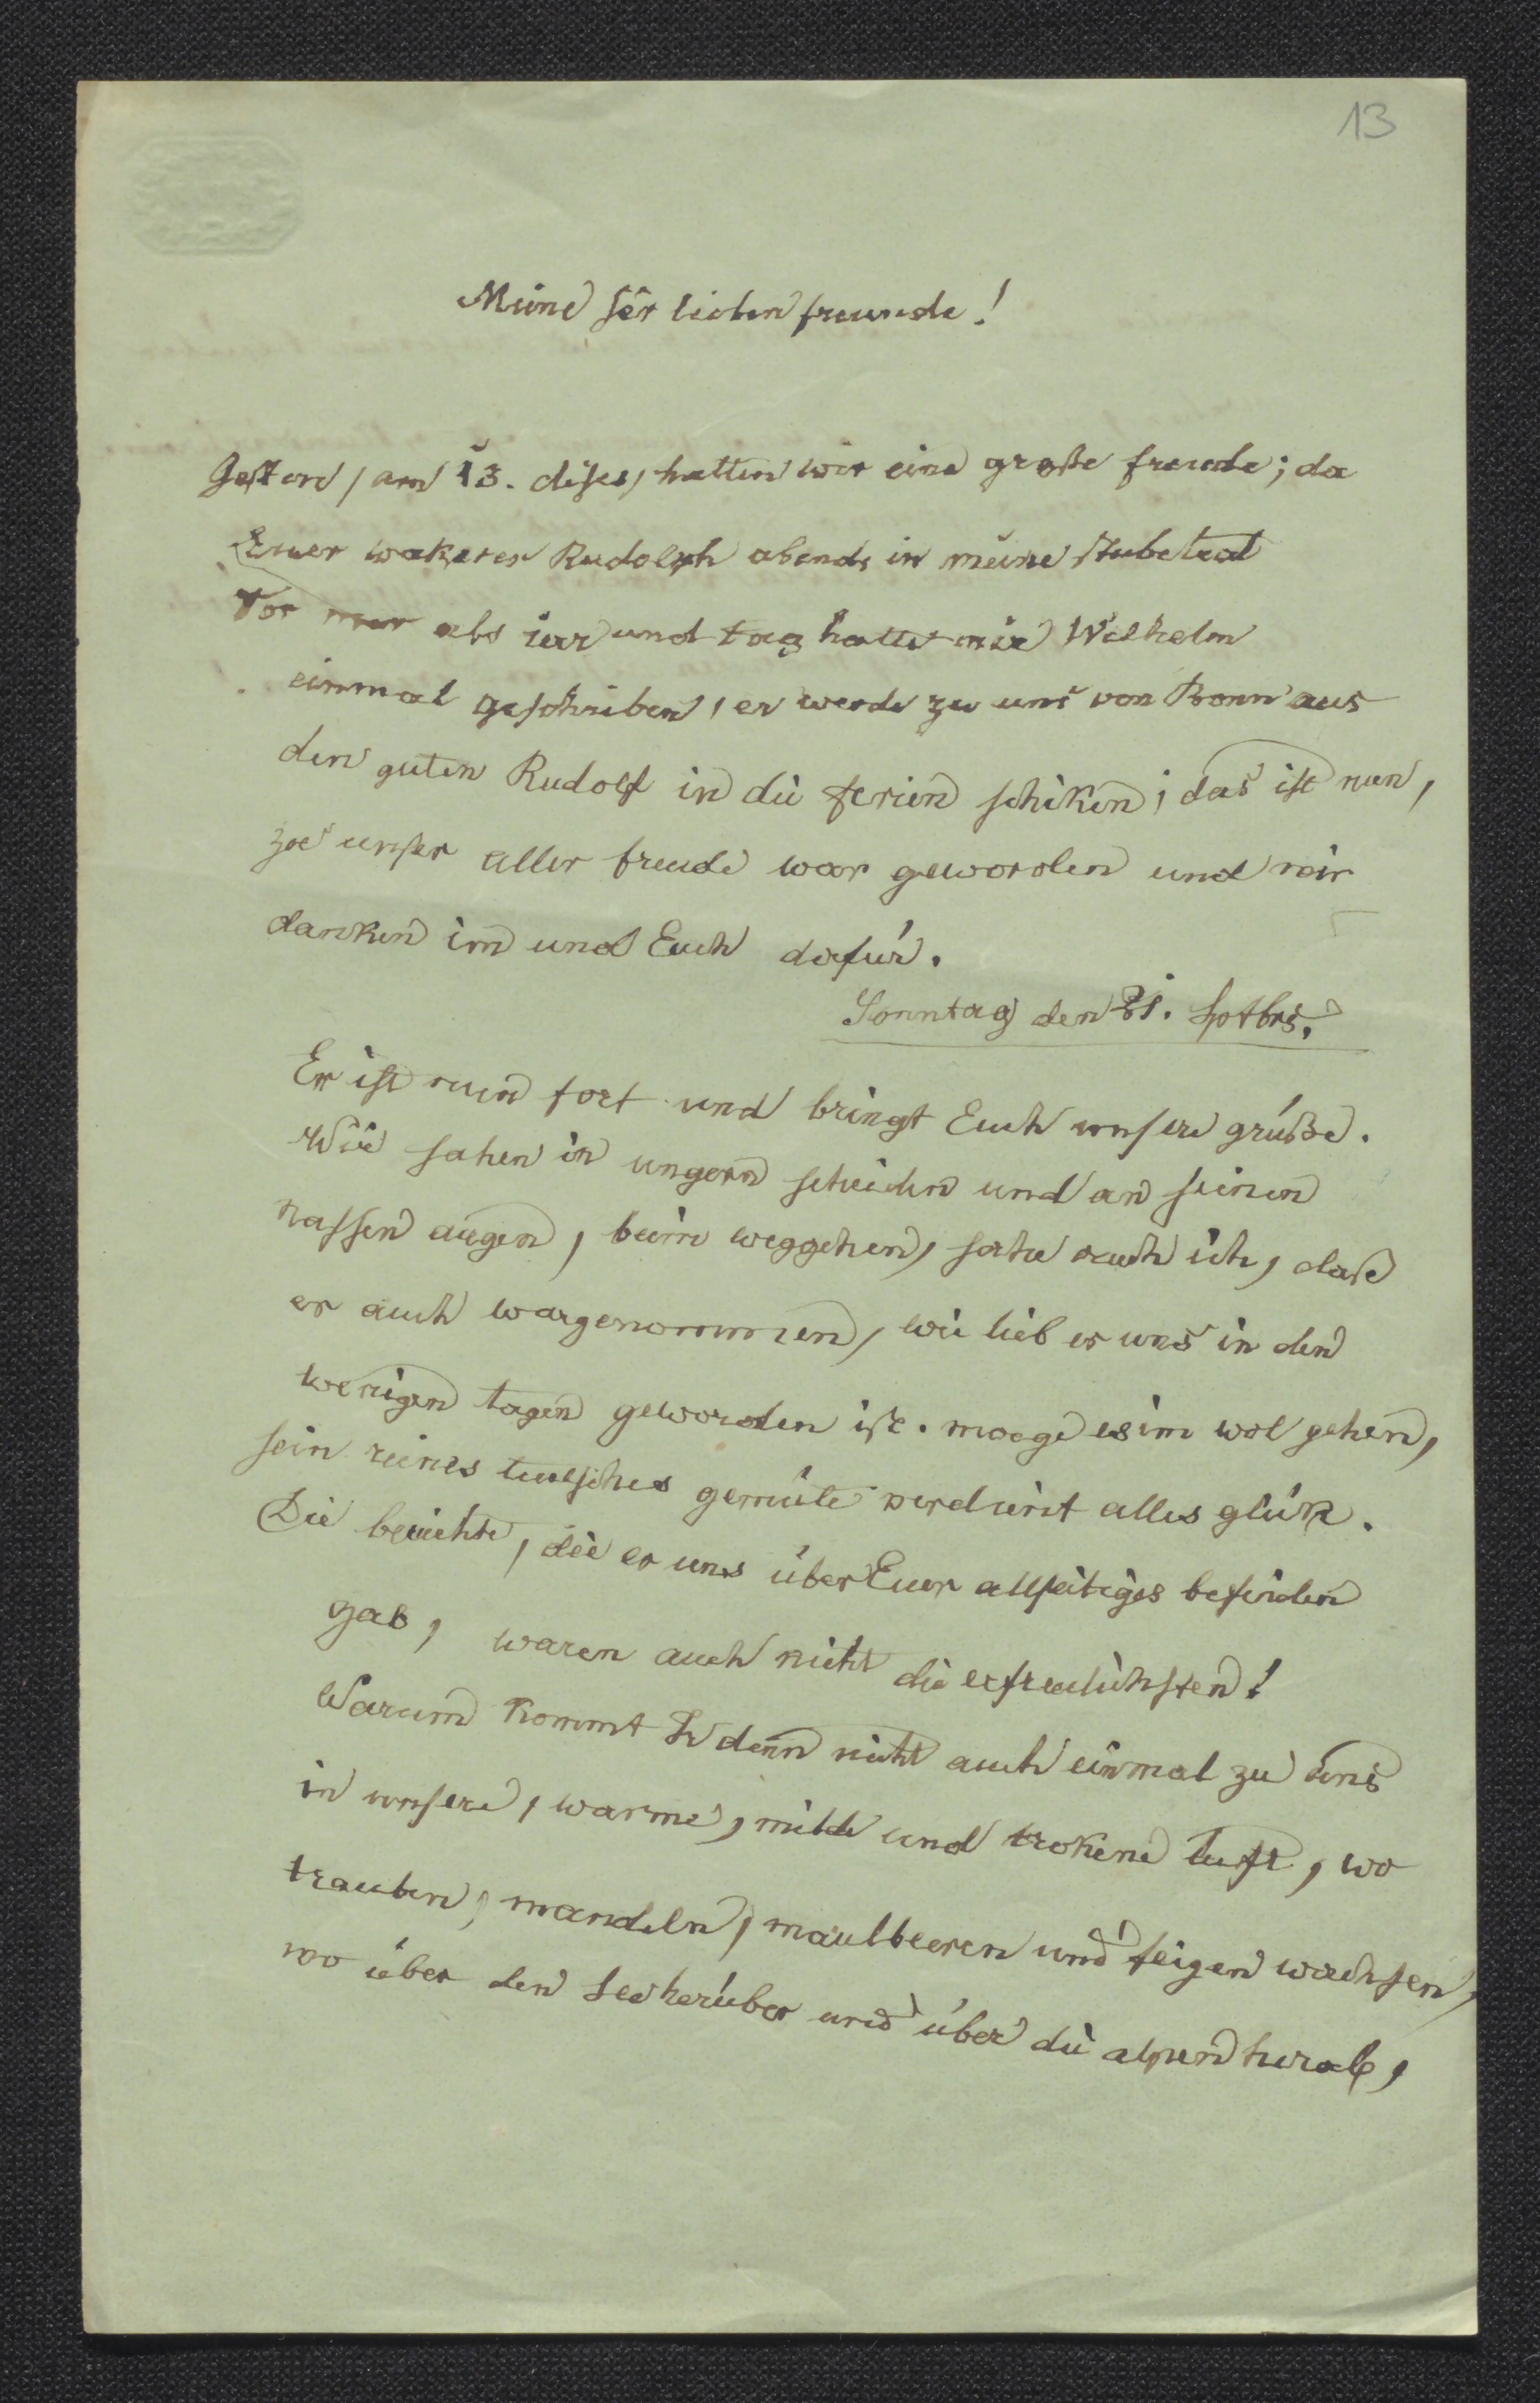 13
Meine sêr lieben freunde!
Gestern, am 13. dises, hatten wir eine große freude; da
Euer wakerer Rudolph abends in meine stube trat
Vor mer als iar und tag hatte mir Wilhelm
einmal geschriben, er werde zu uns von Bonn aus
den guten Rudolf in die ferien schiken; das ist nun,
zue unser aller freude war geworden und wir
danken im und Euch dafür.
Sonntag den 21. Sptbrs.
Er ist nun fort und bringt Euch unsere grüße.
Wir sahen in ungern scheiden und an seinen
nassen augen, beim weggehen, sahe auch ich, daß
er auch wargenommen, wie lieb er uns in den
wenigen tagen geworden ist. moege es im wol gehen,
sein reines teutsches gemüte verdient alles glük.
Die berichte, die er uns über Euer allseitiges befinden
gab, waren auch nicht die erfreulichsten!
Warum kommt Ir denn nicht auch einmal zu uns
in unsere, warme, milde und trokene luft, wo
trauben, mandeln, maulbeeren und feigen wachsen,
wo über den See herüber und über die alpen herab,